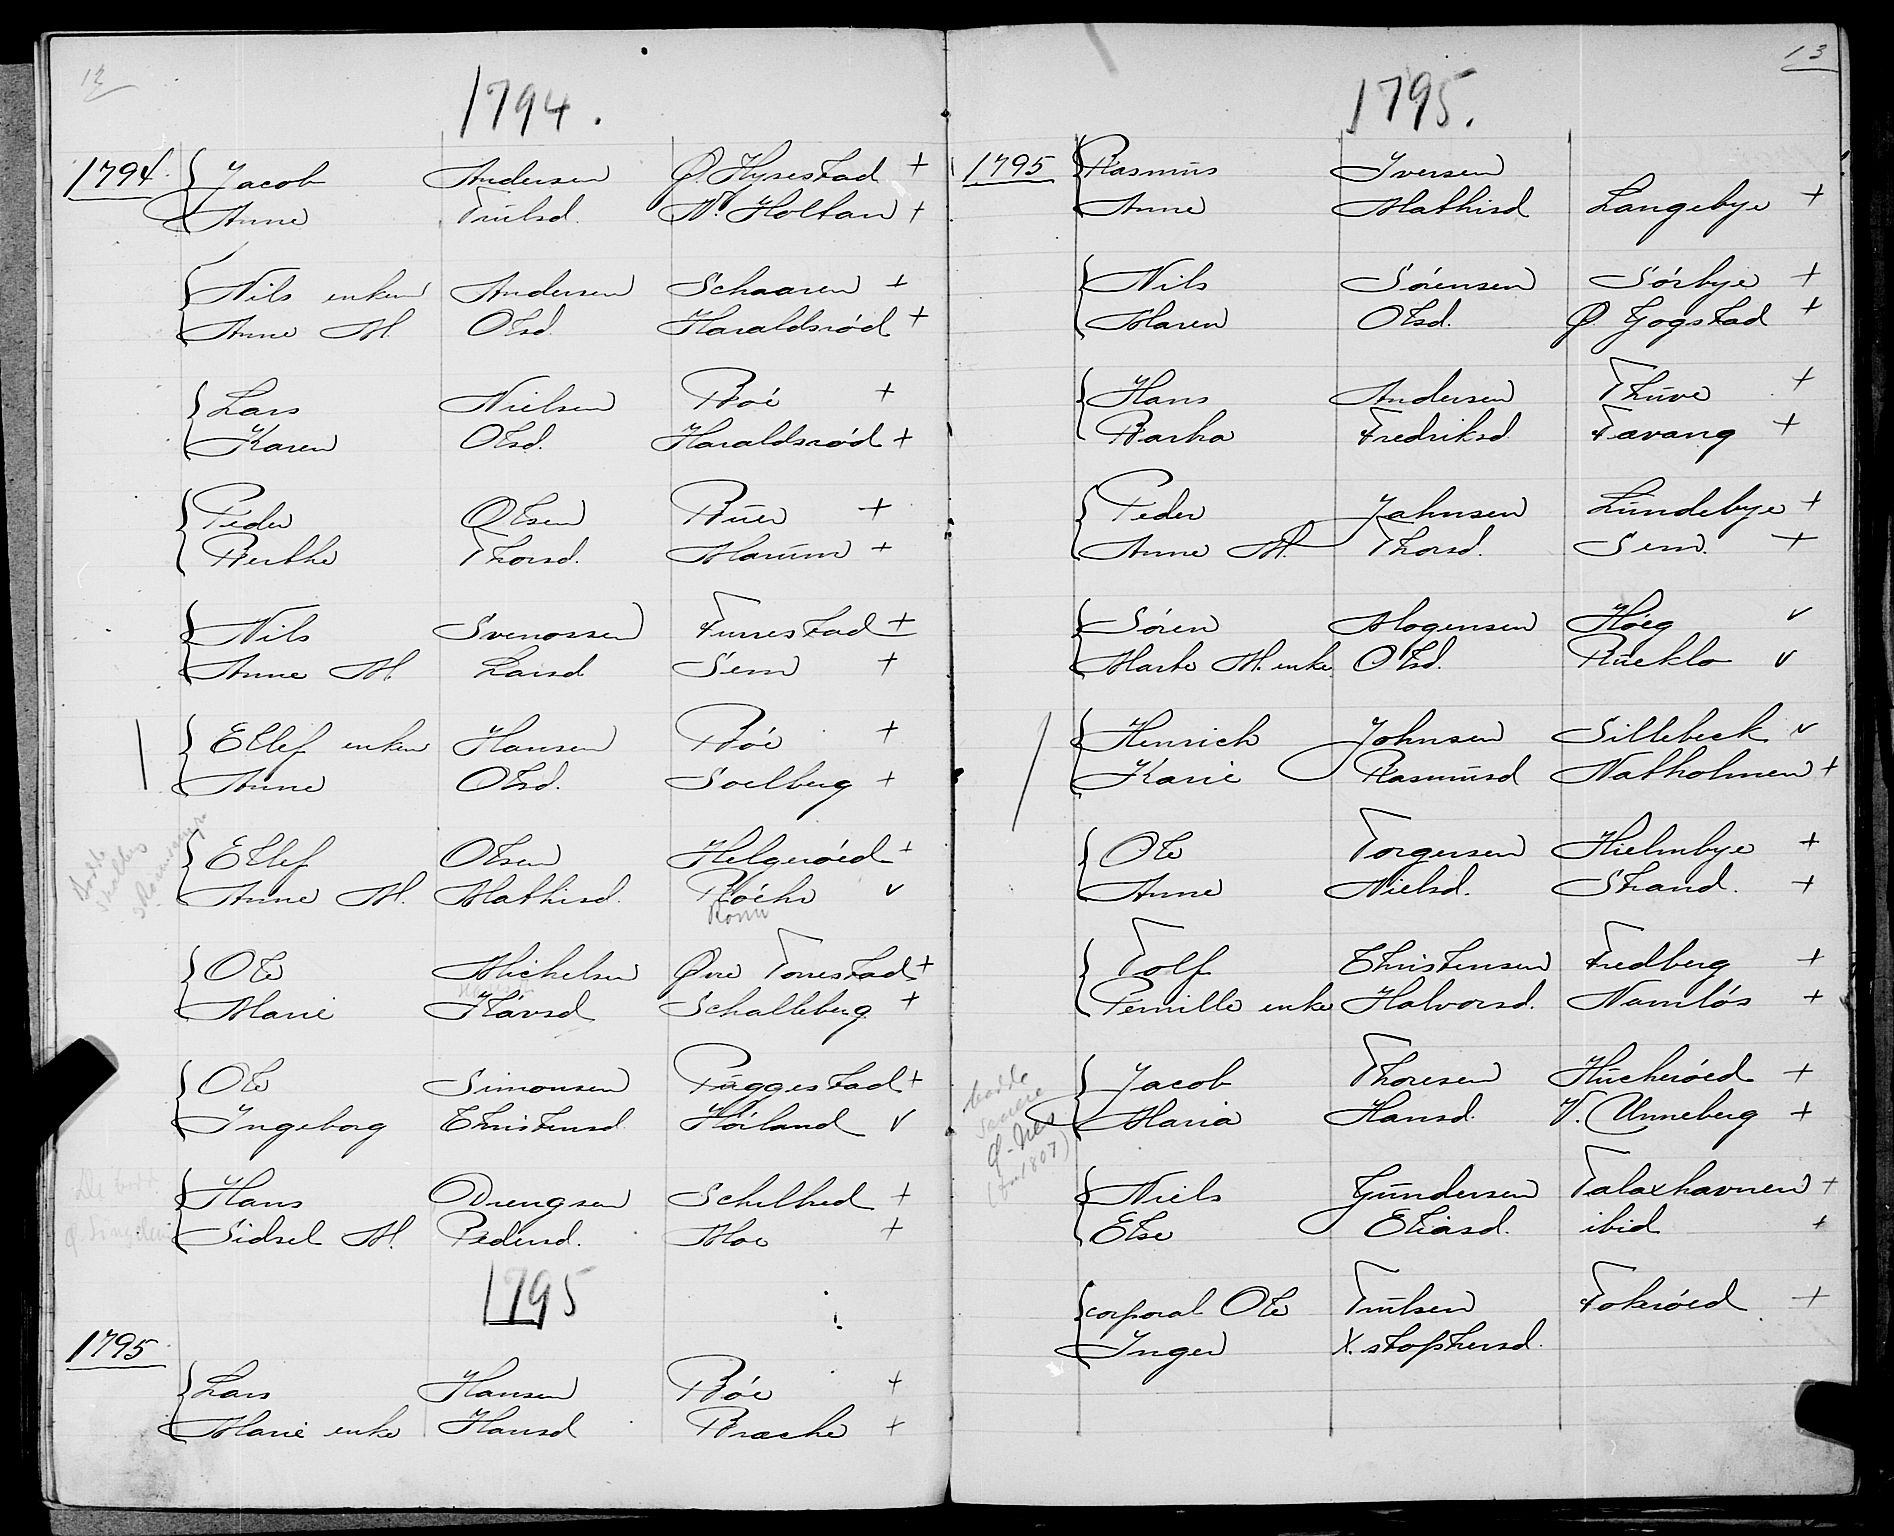 12
1794.
1794. Jacob Andersen Ø. Hysestad +
Anne Trulsd. N. Holtan +
Nils enkem Andersen Schaaren +
Anne M. Olsd. Haraldsrød +
Lars Nielsen Böe +
Karen Olsd. Haraldsrød +
Peder Olsen Buer +
Berthe Thorsd. Marum +
Nils Svenossen Furrestad +
Anne M. Larsd Sem +
Ellef enkem Hansen Böe +
Anne Olsd. Soelberg +
Ellef Olsen Helgeröed +
Anne M. Mathisd. Röehr v
bodde
Ole Michelsen Øvre Torrestad +
Marie Klavsd Schalleberg +
Ole Simonsen Puggestad +
Ingeborg Christensd. Höiland v
Hans Drengsen Schelbred +
Sidsel M. Pedersd. Moe +
1795
1795.
Lars Hansen Böe +
Marie enke Hansd Brache +
13
1795.
1795 Rasmus Iversen
Anne Mathisd Langebye +
Nils Sörensen Sörbye +
Maren Olsd. Ø Gogstad +
Hans Andersen Thuve +
Barha Fredriksd Favang +
Peder Jahnsen Lundebye +
Anne M. Thorsd. Sem. +
Sören Mogensen Höeg v
Marte M. enke Olsd. Rueklo v
Henrich Johnsen Sillebeck v
Karie Rasmusd Natholmen +
Ole Torgersen Hielmbye +
Anne Nielsd. Strand. +
Tolf Christensen Fredberg +
Pernille enke Halvorsd. Namlös +
Jacob Thoresen Hucheröed +
Maria Hansd. V. Unneberg +
bodde
senere
Ø. Nes
(før 1807)
Niels Gundersen Talaxhavnen +
Else Eliasd. ibid +
corporal Ole Trulsen Fokeröed +
Inger X.stophersd.